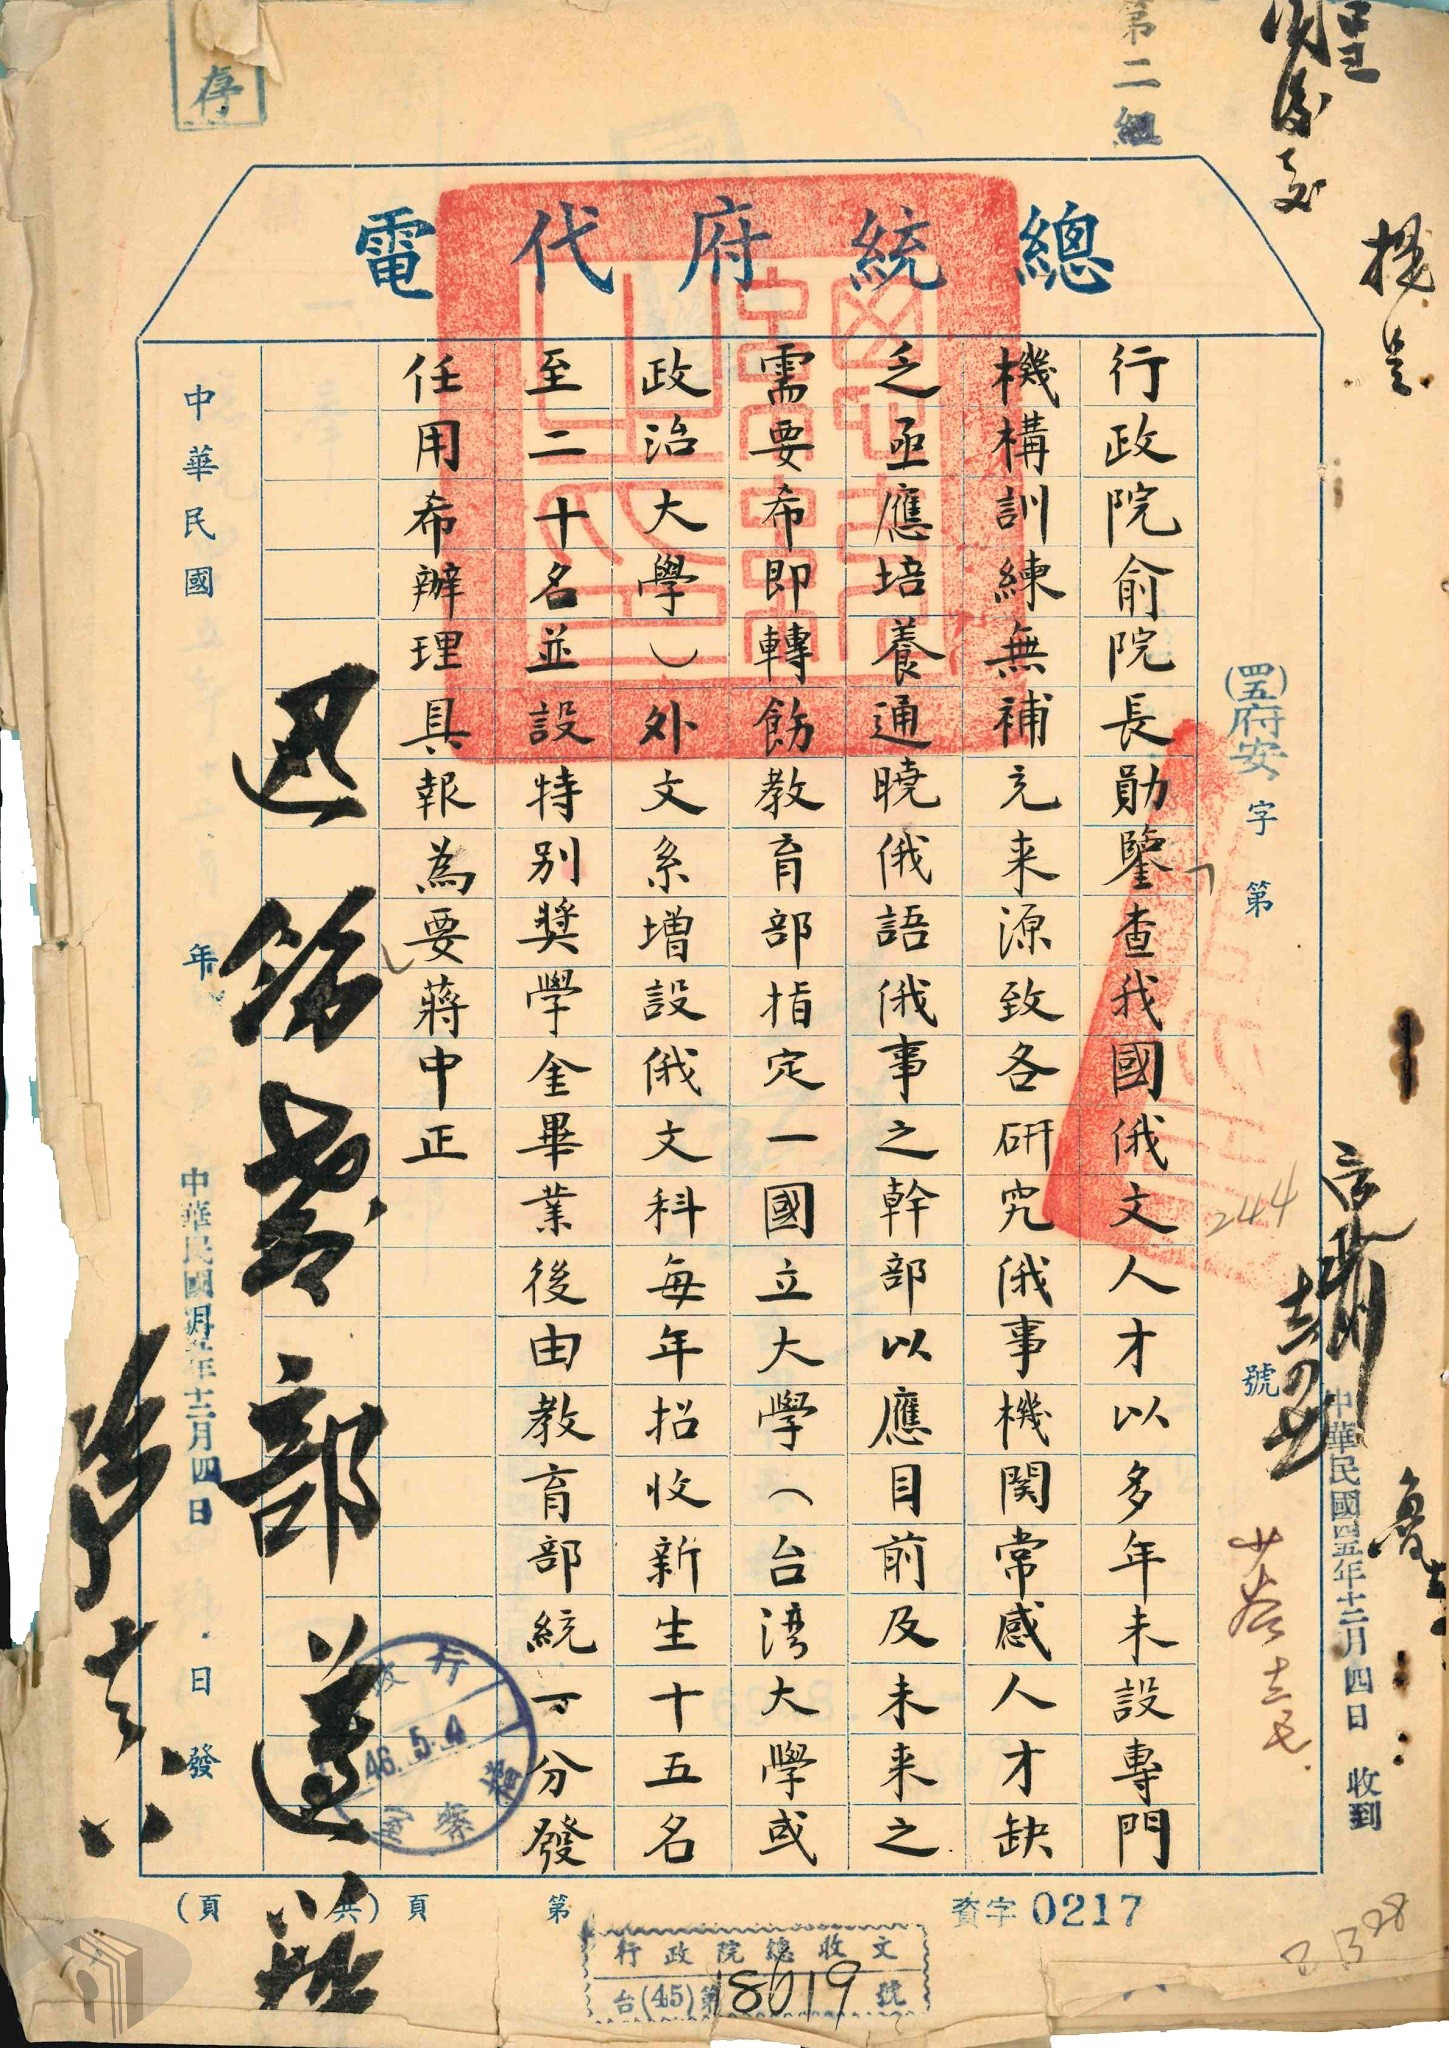 存
第二組
呈
閱後交
總統府代電
(四五)府安字第244號
行政院俞院長勛鑒查我國俄文人才以多年未設專門
機構訓練無補充来源致各研究俄事機関常感人才缺
乏亟應培養通曉俄語俄事之幹部以應目前及未来之
需要希即轉飭教育部指定一國立大學(台湾大學或
政治大學)外文系增設俄文科每年招收新生十五名
至二十名並設特別奬學金畢業後由教育部統一分發
任用希辦理具報為要蔣中正
迅飭教育部遵照
中華民國年日發
中華民國四五年十二月四日
中華民國四五年十二月四日收到
行政院
46.5.4
檔案室
資字0217
第頁(共頁)
行政院總收文
台(45)第18619號